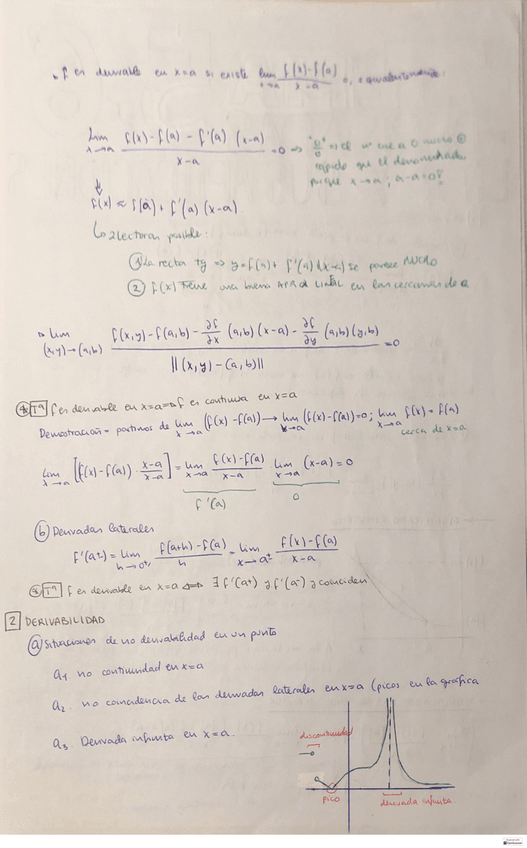 f es derivable en x=a si existe lim x→a (f(x)-f(a))/(x-a) o, equivalentemente:
lim x→a (f(x)-f(a)-f'(a)(x-a))/(x-a) = 0 ⇒ "0/0" ⇒ el
rápido que el denominador
porque x→a ; a-a=0
⇓
f(x) ≈ f(a) + f'(a)(x-a)
↳ 2 lecturas posible:
① La recta tg ⇒ y=f(a)+ f'(a)(x-a) se parece MUCHO
② f(x) tiene una buena APROX LINEAL en las cercanías de a
lim (x,y)→(a,b) (f(x,y)-f(a,b)-∂f/∂x (a,b)(x-a)-∂f/∂y (a,b)(y,b))/||(x,y)-(a,b)|| = 0
Tª f es derivable en x=a ⇒ f es continua en x=a
Demostración = partimos de lim x→a (f(x)-f(a)) → lim x→a (f(x)-f(a))=0 ; lim x→a f(x) = f(a)
cerca de x=a
lim x→a [(f(x)-f(a)) · (x-a)/(x-a)] = lim x→a (f(x)-f(a))/(x-a) · lim x→a (x-a) = 0
f'(a) 0
ⓑ Derivadas laterales
f'(a±) = lim h→0± (f(a+h)-f(a))/h = lim x→a± (f(x)-f(a))/(x-a)
Tª f es derivable en x=a ⇔ ∃ f'(a+) y f'(a-) y coinciden
2 DERIVABILIDAD
ⓐ Situaciones de no derivabilidad en un punto
a₁. no continuidad en x=a
a₂. no coincidencia de las derivadas laterales en x=a (picos en la gráfica
a₃. Derivada infinita en x=a.
discontinuidad
pico
derivada infinita